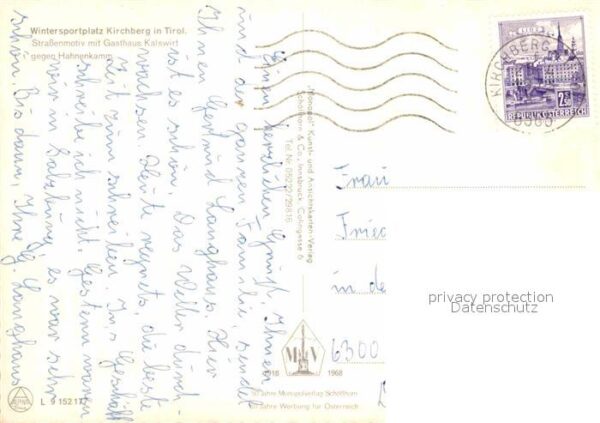 Wintersportplatz Kirchberg in Tirol.
Straßenmotiv mit Gasthaus Kalswirt
gegen Hahnenkamm
Einen herzlichen Gruß Ihnen
und der ganzen Familie, sendet
Ihnen Gertrud Langhaus. Hier
ist es schön. Das Wetter durch-
wachsen. Heute regnets, die beste
Zeit zum schreiben. Ins Geschäft
schreibe ich nicht. Gestern waren
wir in Salzburg, es war sehr
schön. Bis dann, Ihre G. Langhaus
Monopol-, Kunst- und Ansichtskarten-Verlag
Schöllhorn & Co., Innsbruck, Colingasse 6
Tel. Nr. 05222/25816
KIRCHBERG
6365
LINZ
2.50
REPUBLIK ÖSTERREICH
Frau
Fried
in de
6300
privacy protection
Datenschutz
MKV
1918 1968
50 Jahre Monopolverlag Schöllhorn
50 Jahre Werbung für Österreich
L 9 152 17